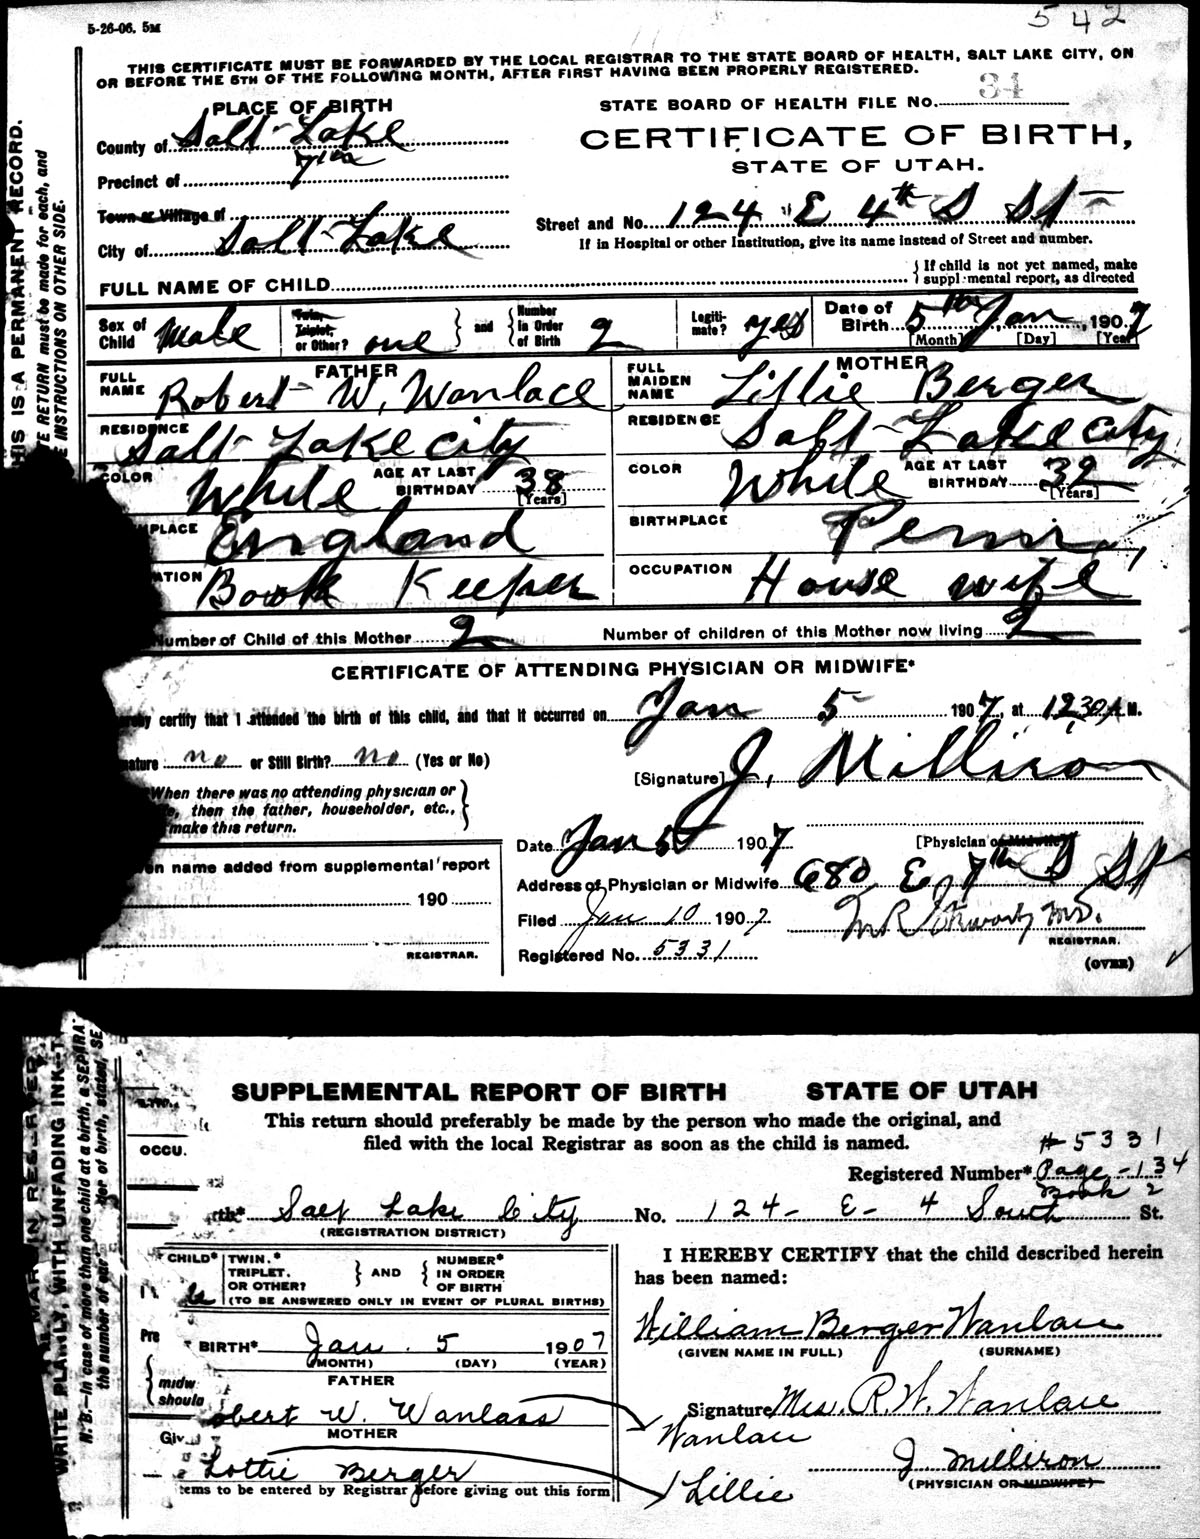 5-26-06. 5M
542
THIS CERTIFICATE MUST BE FORWARDED BY THE LOCAL REGISTRAR TO THE STATE BOARD OF HEALTH, SALT LAKE CITY, ON
OR BEFORE THE 5TH OF THE FOLLOWING MONTH, AFTER FIRST HAVING BEEN PROPERLY REGISTERED.
HIS IS A PERMANENT RECORD.
TE RETURN must be made for each, and
E INSTRUCTIONS ON OTHER SIDE.
PLACE OF BIRTH
County of Salt Lake
Precinct of
Town or Village of
City of Salt Lake
STATE BOARD OF HEALTH FILE No. 34
CERTIFICATE OF BIRTH,
STATE OF UTAH.
Street and No. 124 E 4th S St
If in Hospital or other Institution, give its name instead of Street and number.
FULL NAME OF CHILD
If child is not yet named, make
supplemental report, as directed
Sex of Child Male
Twin, Triplet, or Other? one
and
Number in Order of Birth 2
Legiti-mate? yes
Date of Birth 5th Jan, 1907
[Month] [Day] [Year]
FATHER
FULL NAME Robert W. Wanlace
RESIDENCE Salt Lake City
COLOR White AGE AT LAST BIRTHDAY 38 [Years]
PLACE England
ATION Book Keeper
MOTHER
FULL MAIDEN NAME Lillie Berger
RESIDENCE Salt Lake City
COLOR White AGE AT LAST BIRTHDAY 32 [Years]
BIRTHPLACE Penn,
OCCUPATION House wife
Number of Child of this Mother 2 Number of children of this Mother now living 2
CERTIFICATE OF ATTENDING PHYSICIAN OR MIDWIFE*
reby certify that I attended the birth of this child, and that it occurred on Jan 5 1907, at 12 30 A M.
ature no or Still Birth? no (Yes or No)
When there was no attending physician or
e, then the father, householder, etc.,
make this return.
[Signature] J. Milliron
[Physician or Midwife]
Date Jan 5 1907
Address of Physician or Midwife 680 E 7th S St
Filed Jan 10 1907
REGISTRAR.
Registered No. 5331
(OVER)
en name added from supplemental report
190
REGISTRAR.
WRITE PLAINLY, WITH UNFADING INK
N. B.—In case of more than one child at a birth, a SEPARA
the number of each
er of birth, stated, SE
OCCU.
SUPPLEMENTAL REPORT OF BIRTH STATE OF UTAH
This return should preferably be made by the person who made the original, and
filed with the local Registrar as soon as the child is named.
#5331
Registered Number* Page-134
Book 2
rth* Salt Lake City No. 124- E- 4 South St.
(REGISTRATION DISTRICT)
CHILD* TWIN.* TRIPLET. OR OTHER? AND NUMBER* IN ORDER OF BIRTH
(TO BE ANSWERED ONLY IN EVENT OF PLURAL BIRTHS)
Pre
BIRTH* Jan. 5 1907
(MONTH) (DAY) (YEAR)
midw
should
FATHER
obert W. Wanlass
Giv
MOTHER
Lottie Berger
tems to be entered by Registrar before giving out this form
I HEREBY CERTIFY that the child described herein
has been named:
William Berger Wanlace
(GIVEN NAME IN FULL) (SURNAME)
Signature Mrs. R. W. Wanlace
Wanlace
J Milliron
(PHYSICIAN OR MIDWIFE)
Lillie